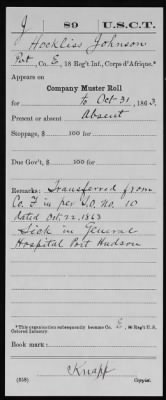 J | 89 | U.S.C.T.
Hockliss Johnson
Pvt, Co. E, 18 Reg't Inf., Corps d'Afrique.*
Appears on
Company Muster Roll
for to Oct 31, 1863.
Present or absent Absent
Stoppage, $ 100 for
Due Gov't, $ 100 for
Remarks: Transferred from
Co. F in per S.O. No. 10
dated Oct. 22. 1863
Sick in General
Hospital Port Hudson
*This organization subsequently became Co. E, 89 Reg't U.S.
Colored Infantry.
Book mark:
Knapp
(358) Copyist.